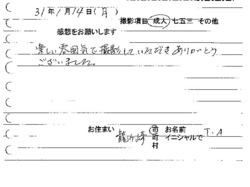 31年1月14日(月)
撮影項目 成人 七五三 その他
感想をお願いします
楽しい雰囲気で撮影していただきありがとう
ございました。
お住まい 龍ケ崎 市 町 村 お名前 イニシャルで T.A